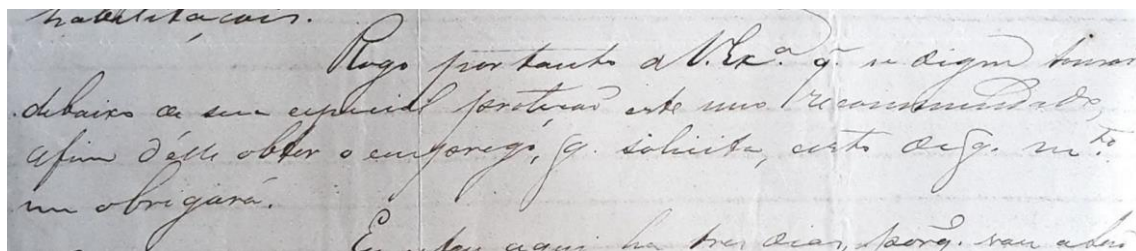 habilitações.
Rogo portanto a V. Ex.ª q. se digne tomar
debaixo de sua especial protecção este meu recommendado,
afim d'elle obter o emprego, q. solicita, certo de q. m.to
me obrigará.
Eu estou aqui ha tres dias, porq. vou a